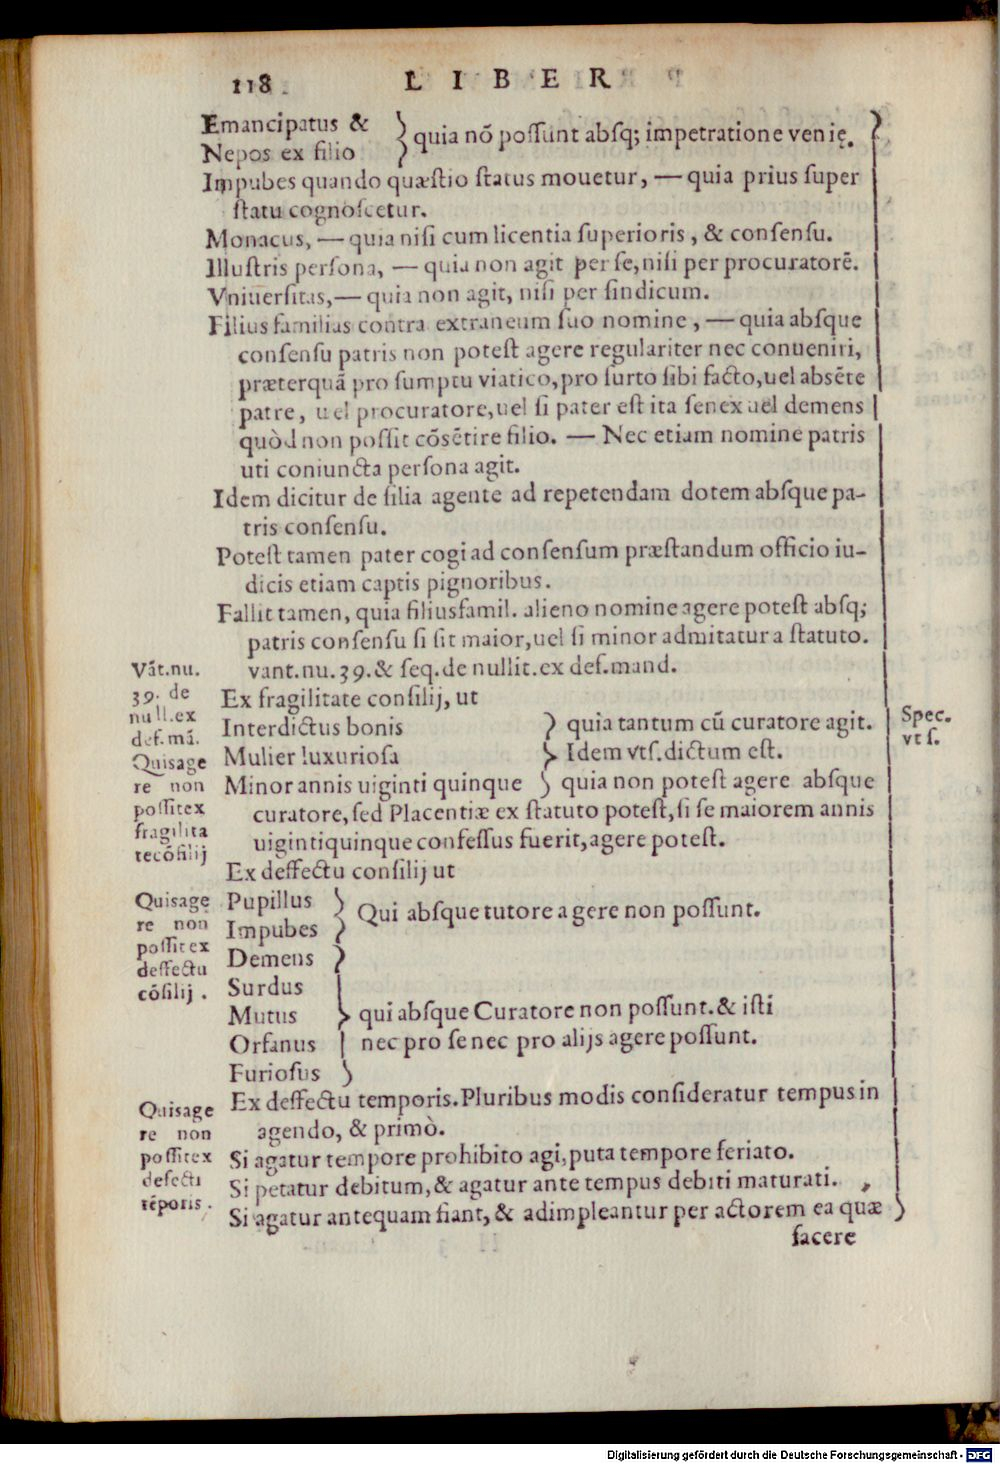 118 LIBER
Emancipatus &
Nepos ex filio } quia nō poſſunt abſq; impetratione venię.
Impubes quando quæſtio ſtatus mouetur, — quia prius ſuper
ſtatu cognoſcetur.
Monacus, — quia niſi cum licentia ſuperioris, & conſenſu.
Illuſtris perſona, — quia non agit per ſe, niſi per procuratorē.
Vniuerſitas, — quia non agit, niſi per ſindicum.
Filius familias contra extraneum ſuo nomine, — quia abſque
conſenſu patris non poteſt agere regulariter nec conueniri,
præterquā pro ſumptu viatico, pro furto ſibi facto, uel absēte
patre, uel procuratore, uel ſi pater eſt ita ſenex uel demens
quòd non poſſit cōsētire filio. — Nec etiam nomine patris
uti coniuncta perſona agit.
Idem dicitur de filia agente ad repetendam dotem abſque pa-
tris conſenſu.
Poteſt tamen pater cogi ad conſenſum præſtandum officio iu-
dicis etiam captis pignoribus.
Fallit tamen, quia filiusfamil. alieno nomine agere poteſt abſq;
patris conſenſu ſi ſit maior, uel ſi minor admitatur a ſtatuto.
vant. nu. 39. & ſeq. de nullit. ex def. mand.
Vāt. nu.
39. de
null. ex
def. mā.
Ex fragilitate conſilij, ut
Interdictus bonis } quia tantum cū curatore agit.
Mulier luxurioſa } Idem vtſ. dictum eſt.
Spec.
vt ſ.
Minor annis uiginti quinque } quia non poteſt agere abſque
curatore, ſed Placentiæ ex ſtatuto poteſt, ſi ſe maiorem annis
uigintiquinque confeſſus fuerit, agere poteſt.
Quis age
re non
poſſit ex
fragilita
te cōſilij
Ex deffectu conſilij ut
Pupillus
Impubes } Qui abſque tutore agere non poſſunt.
Quis age
re non
poſſit ex
deffectu
cōſilij.
Demens
Surdus
Mutus } qui abſque Curatore non poſſunt. & iſti
Orfanus nec pro ſe nec pro alijs agere poſſunt.
Furioſus
Ex deffectu temporis. Pluribus modis conſideratur tempus in
agendo, & primò.
Quis age
re non
poſſit ex
defecti
tēporis.
Si agatur tempore prohibito agi, puta tempore feriato.
Si petatur debitum, & agatur ante tempus debiti maturati.
Si agatur antequam fiant, & adimpleantur per actorem ea quæ
facere
Digitalisierung gefördert durch die Deutsche Forschungsgemeinschaft - DFG